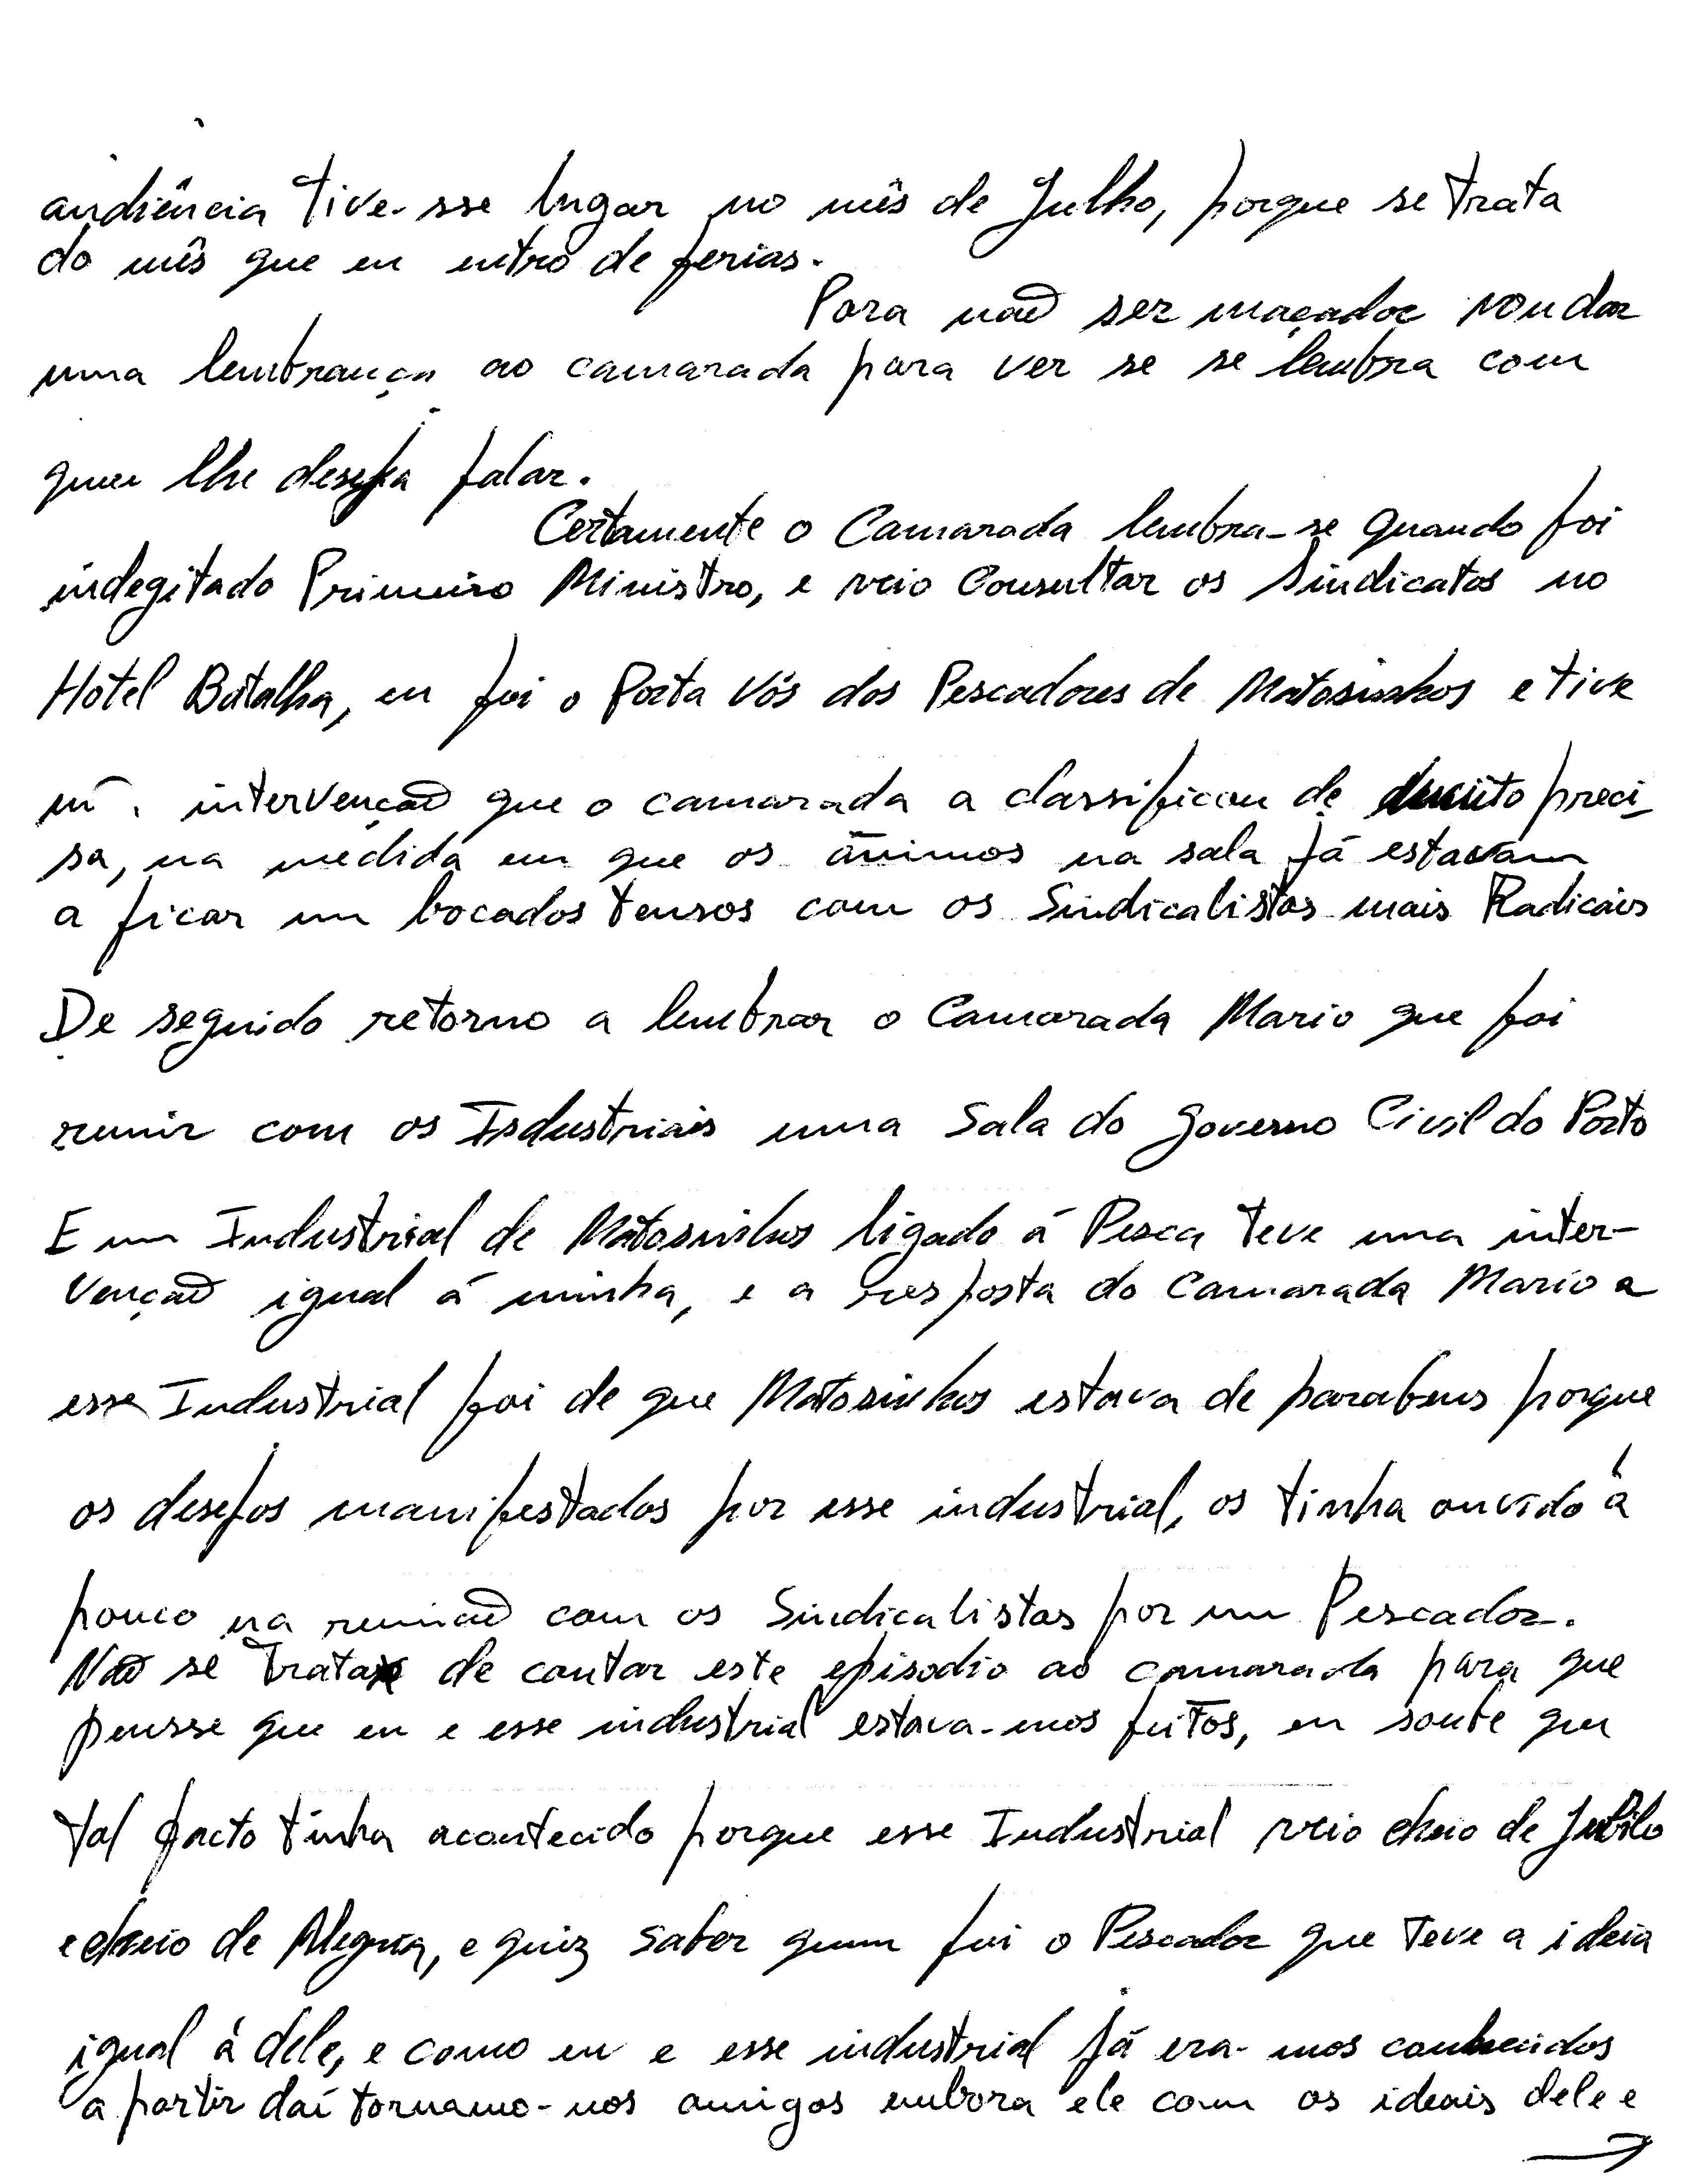 audiência tive-sse lugar no mês de Julho, porque se trata
do mês que eu entro de ferias.
Para não ser maçador vou dar
uma lembrança ao camarada para ver se se lembra com
quem lhe deseja falar.
Certamente o Camarada lembra-se quando foi
indegitado Primeiro Ministro, e veio Consultar os Sindicatos no
Hotel Batalha, eu fui o Porta Vós dos Pescadores de Matosinhos e tive
intervenção que o camarada a classificou de muito preci-
sa, na medida em que os ânimos na sala já estavam
a ficar um bocados tensos com os Sindicalistas mais Radicais
De seguido retorno a lembrar o Camarada Mario que foi
reunir com os Industriais uma Sala do Governo Civil do Porto
E um Industrial de Matosinhos ligado á Pesca teve uma inter-
venção igual á minha, e a resposta do Camarada Mario a
esse Industrial foi de que Matosinhos estava de parabens porque
os desejos manifestados por esse industrial, os tinha ouvido à
pouco na reunião com os Sindicalistas por um Pescador.
Não se trata de contar este episodio ao camarada para que
pensse que eu e esse industrial estava-mos feitos, eu soube que
tal facto tinha acontecido porque esse Industrial veio cheio de Jubilo
e cheio de Alegria, e quiz saber quem fui o Pescador que teve a ideia
igual à dele, e como eu e esse industrial já era-mos conhecidos
a partir daí tornamo-nos amigos embora ele com os ideais dele e